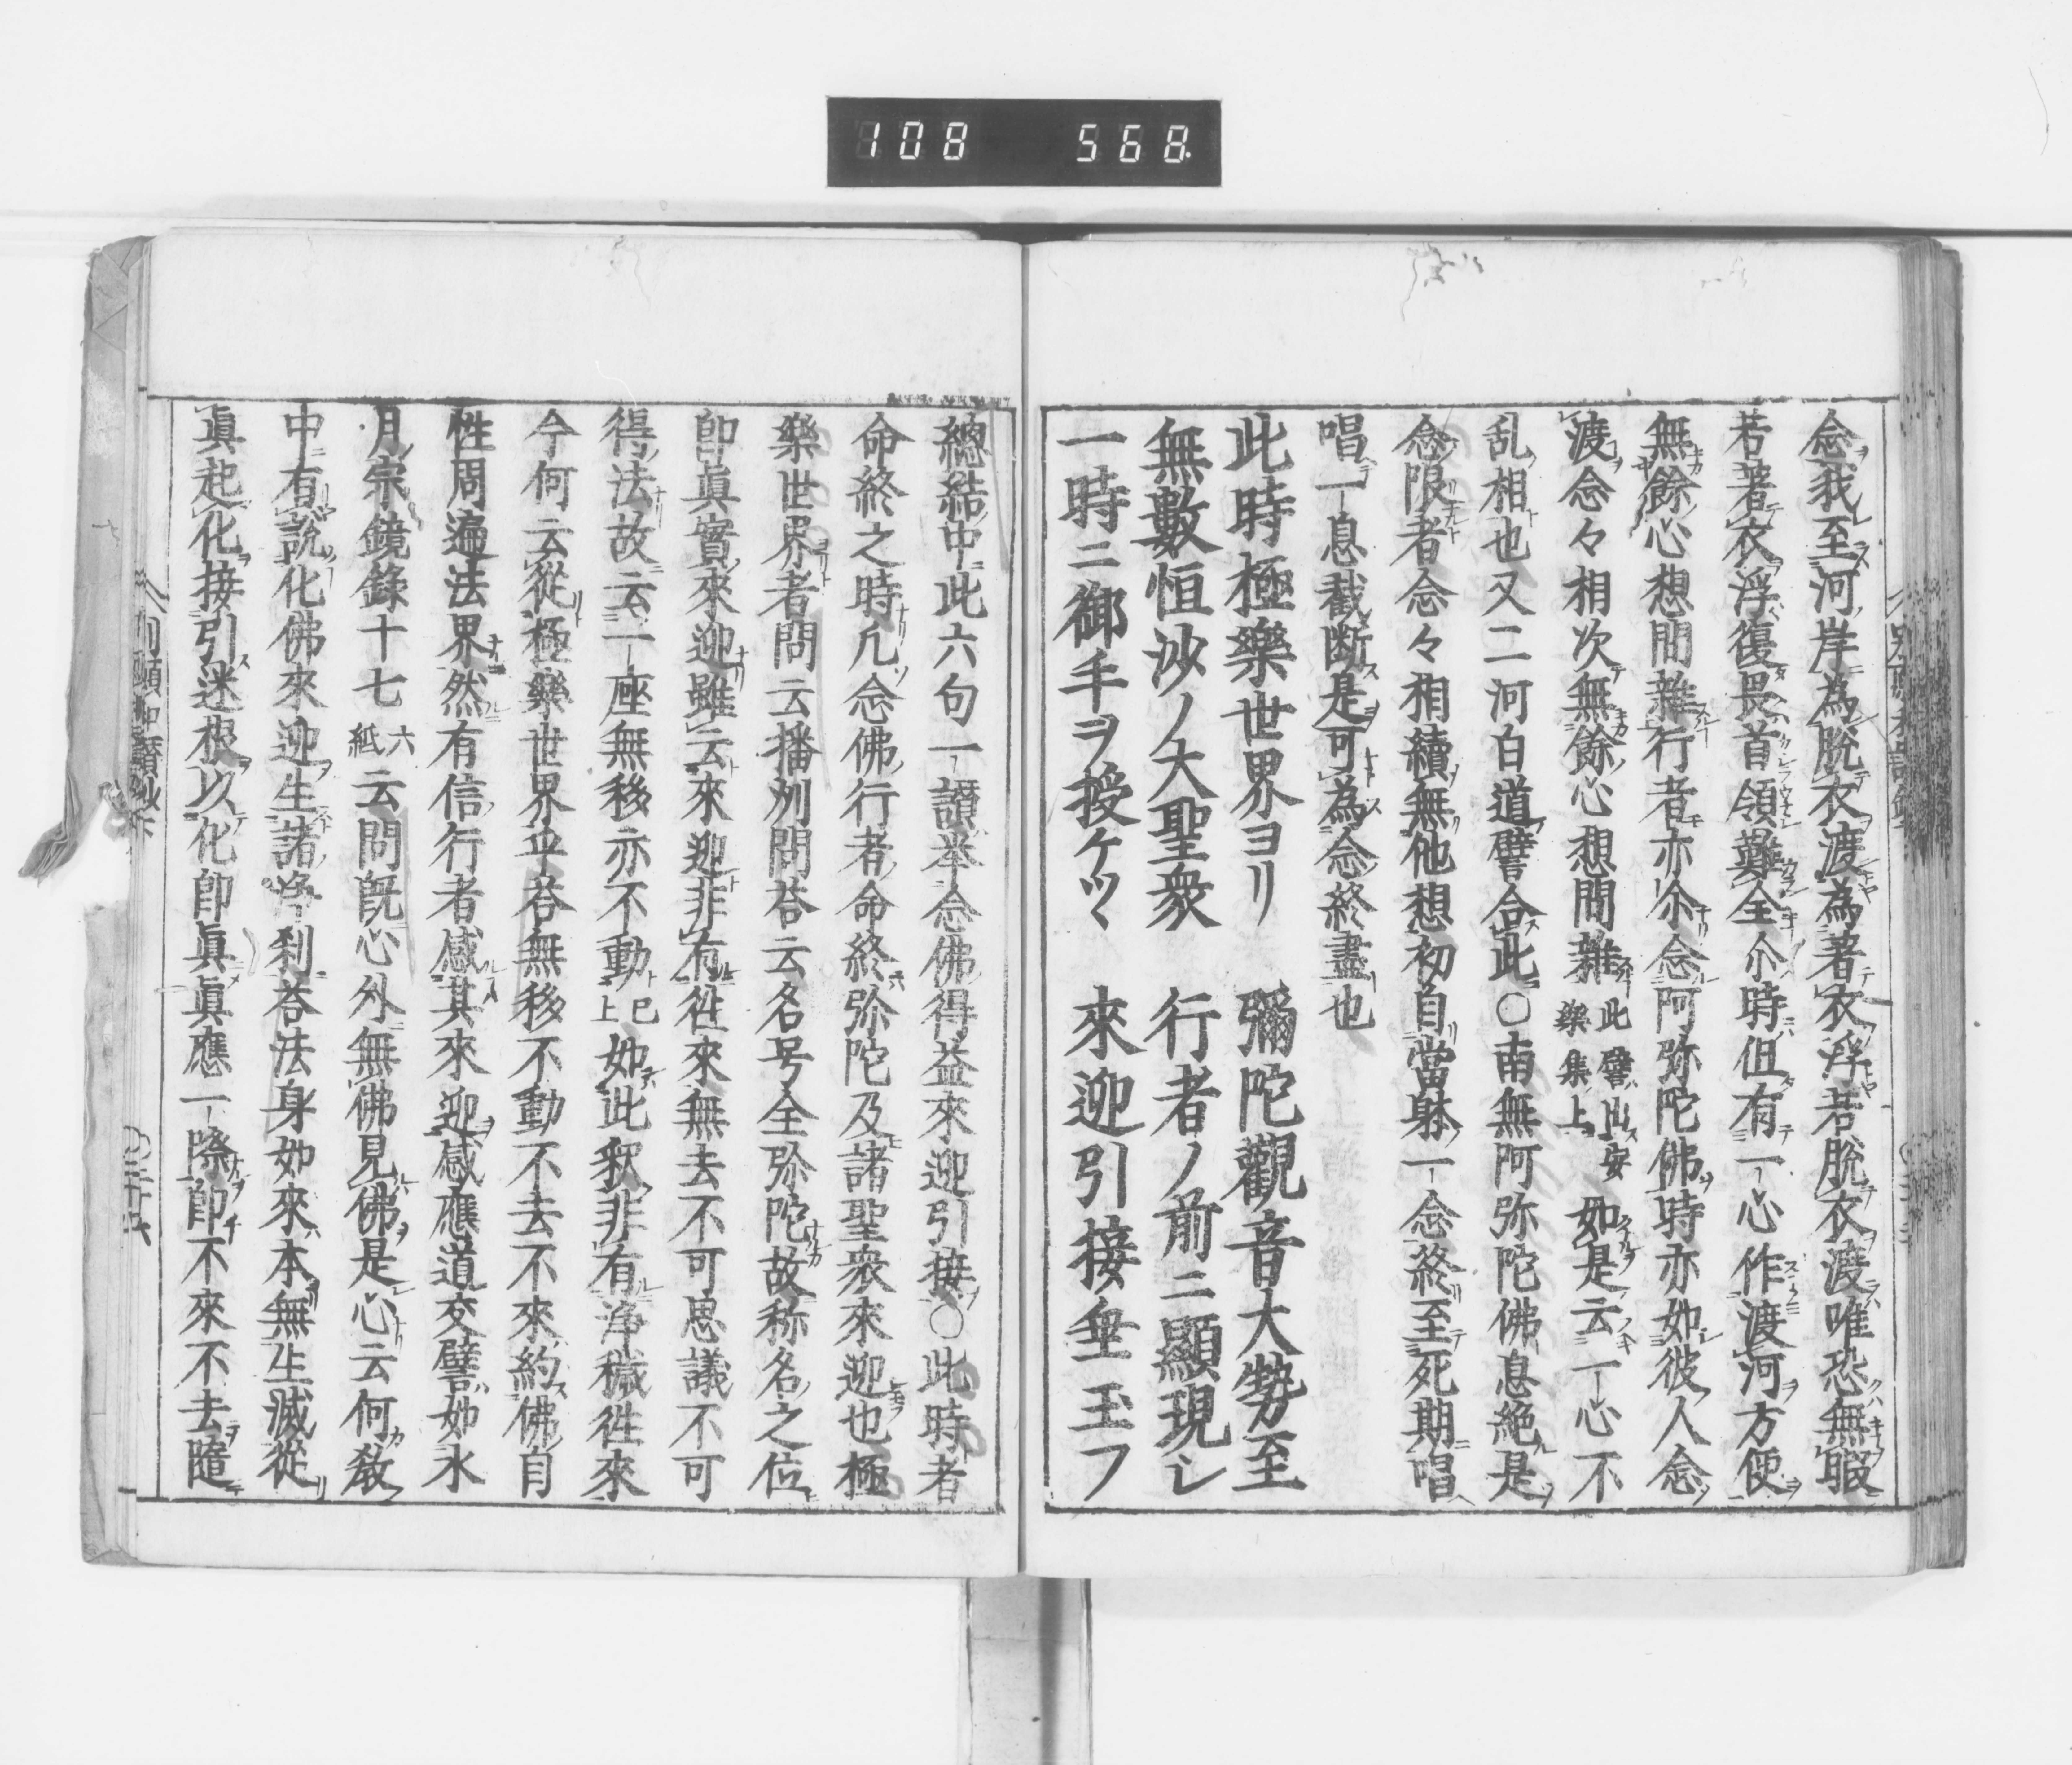 108 568
念我至河岸為脱衣渡為著衣浮若脱衣渡唯恐無暇
若著衣浮復畏首領難全尒時但有一心作渡河方便
無餘心想間雜行者亦尒念阿弥陀佛時亦如彼人念
渡念々相次無餘心想間雜此譬出安樂集上如是云一心不
乱相也又二河白道譬合此○南無阿弥陀佛息絶是
念限者念々相續無他想初自當躰一念終至死期唱
唱一息截断是可為念終盡也
此時極樂世界ヨリ 彌陀觀音大勢至
無數恒沙ノ大聖衆 行者ノ前ニ顯現シ
一時ニ御手ヲ授ケツヽ 來迎引接垂玉フ
總結中此六句一讃举念佛得益來迎引接○此時者
命終之時凢念佛行者命終弥陀及諸聖衆來迎也極
樂世界者問云播州問荅云名号全弥陀故称名之位
即眞實來迎雖云來迎非有徃來無去不可思議不可
得法故云一座無移亦不動已上如此釈非有浄穢徃來
今何云從極樂世界乎荅無移不動不去不來約佛自
性周遍法界然有信行者感其來迎感應道交譬如水
月宗鏡錄十七六紙云問既心外無佛見佛是心云何教
中有説化佛來迎生諸浄刹荅法身如來本無生滅從
眞起化接引迷根以化即眞眞應一際即不來不去隨